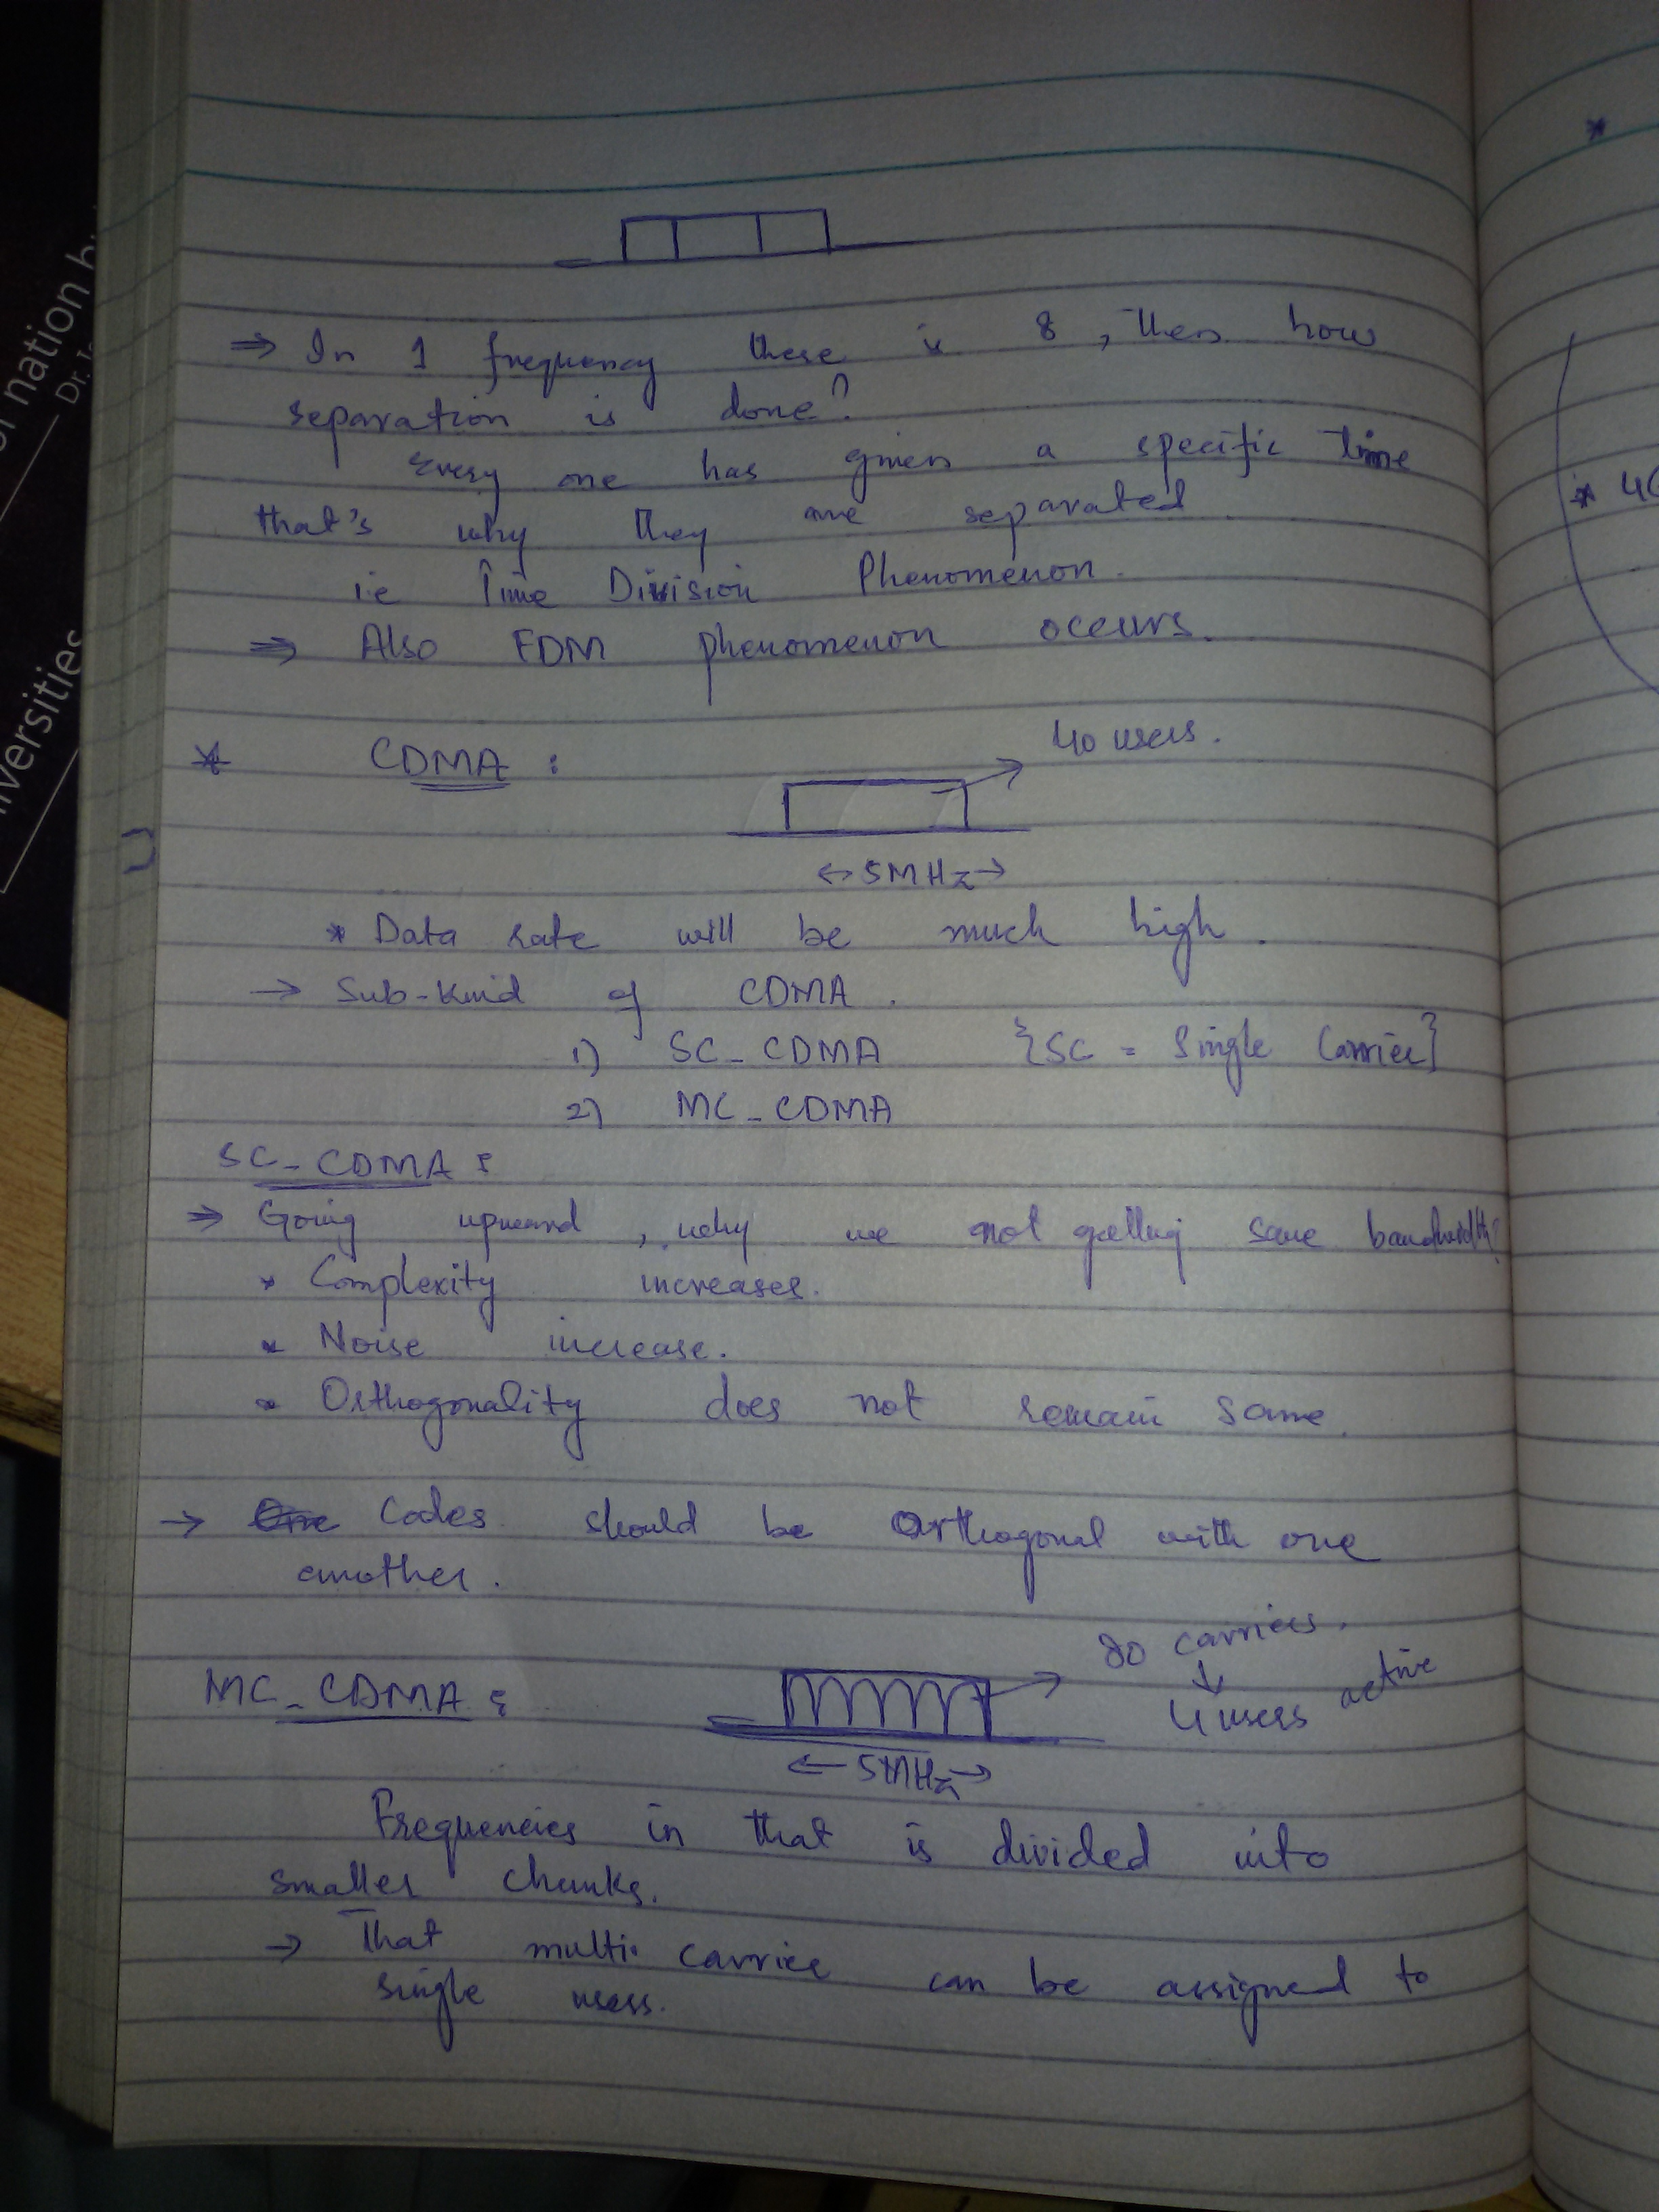 ⇒ In 1 frequency there is 8, then how
separation is done?
Every one has given a specific time
that's why they are separated
i.e Time Division Phenomenon.
⇒ Also FDM phenomenon occurs.
* CDMA :
40 users.
↔ 5MHz →
* Data rate will be much high.
→ Sub-kind of CDMA.
1) SC_CDMA {SC = Single Carrier}
2) MC_CDMA
SC_CDMA :
⇒ Going upward, why we not getting same bandwidth?
* Complexity increases.
* Noise increase.
* Orthogonality does not remain same.
→ Codes should be Orthogonal with one
another.
80 carriers.
↓
4 users active
MC_CDMA :
← 5MHz →
Frequencies in that is divided into
smaller chunks.
→ That multi carrier can be assigned to
single users.
*
* 4G
of nation b
Dr. I
iversities